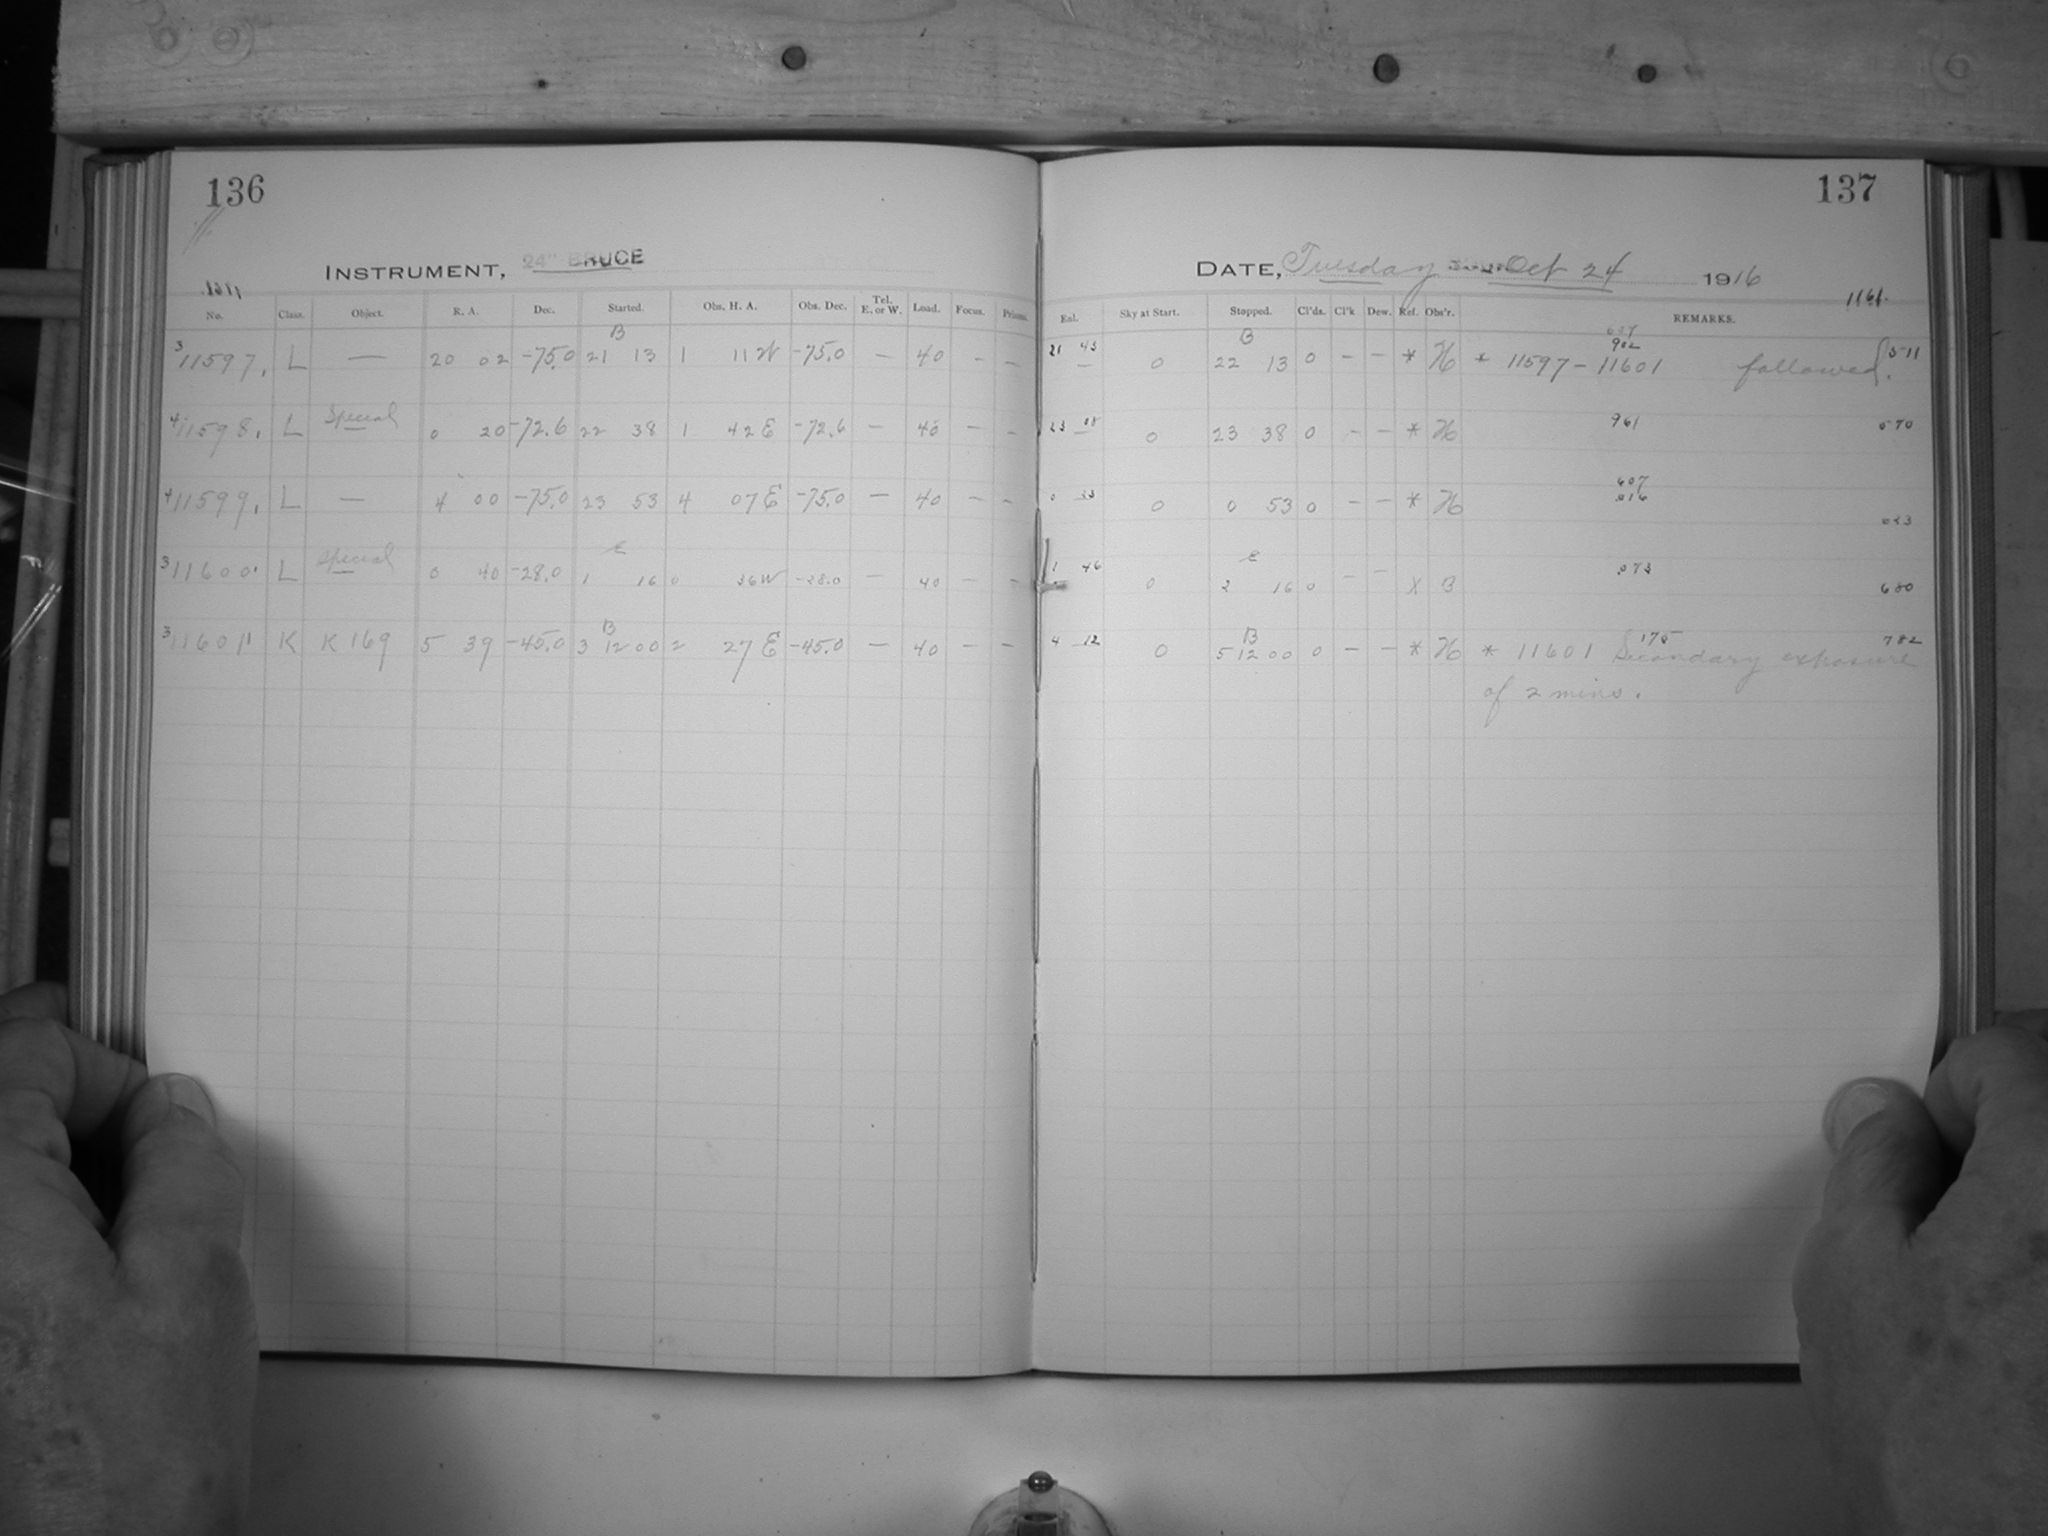 136
INSTRUMENT, 24" BRUCE
No. Class. Object. R. A. Dec. Started. Obs. H. A. Obs. Dec. Tel. E. or W. Load. Focus. Prisms.
B
3 11597. L — 20 02 -75.0 21 13 1 11W -75.0 — 40 - -
4 11598. L Special 0 20 -72.6 22 38 1 42E -72.6 — 40 - -
4 11599. L — 4 00 -75.0 23 53 4 07E -75.0 — 40 - -
E
3 11600. L Special 0 40 -28.0 1 16 0 36W -28.0 — 40 - -
B
3 11601 K K 169 5 39 -45.0 3 12 00 2 27E -45.0 — 40 - -
137
DATE, Tuesday Oct 24 1916
1161.
Eql. Sky at Start. Stopped. Cl'ds. Cl'k Dew. Ref. Obs'r. REMARKS.
B
902
21 43 0 22 13 0 - - * H * 11597 - 11601 followed. 511
961
23 08 0 23 38 0 - - * H 570
607
0 23 0 0 53 0 - - * H
E
073
1 46 0 2 16 0 - - X B 680
B
175 782
4 12 0 5 12 00 0 - - * H * 11601 Secondary exposure
of 2 mins.